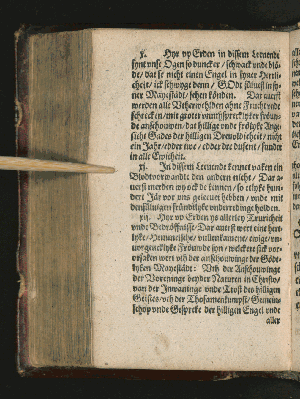 x. Hyr vp Erden in dissem Leuende
synt vnse Ogen so duncker / schwack vnde blö-
de / dat se nicht einen Engel in syner Herrli-
cheit / ick schwyge denn / GOdt süluest in sy-
ner Mayestädt / sehen könden. Dar auerst
werden alle Vtherwehlden ahne Frucht vnde
schrecken / mit groter vnuthsprecklyker fröuw-
de anschouwen / dat hillige vnde frölyke Ange-
sichte Gades der hilligen Drevoldicheit / nicht
ein Jahr / edder twe / edder dre dusent / sunder
in alle Ewicheit.
xj. In dissem Leuende kennet vaken ein
Blodtvorwandte den andern nicht / Dar a-
uerst werden wy ock de kennen / so etlyke hun-
dert Jär vör vns geleuet hebben / vnde mit
densüluigen fründtlyke vnderredinge holden.
xij. Hyr vp Erden ys allerley Truricheit
vnde Bedröffnisse / Dar auerst wert eine hert-
lyke / Hemmelsche / vullenkamene / ewige / vn-
vorgencklyke Fröuwde syn / welckere sick vor-
orsaken wert vth der anschouwinge der Göd-
lyken Mayestädt: Vth der Anschouwinge
der Voreninge beyder Naturen in Christo /
van der Inwaninge vnde Trost des hilligen
Geistes / vth der Thosamenkumpst / Gemein-
schop vnde Gespreke der hilligen Engel vnde
aller